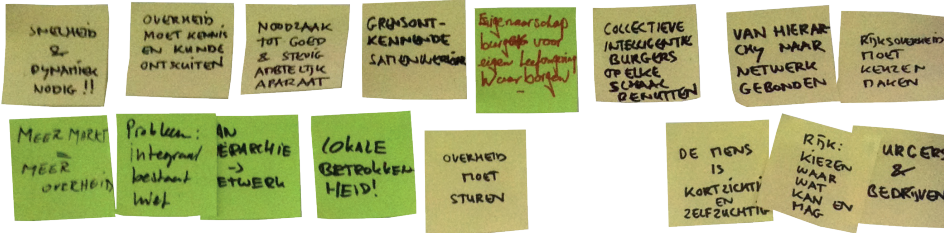 SNELHEID
&
DYNAMIEK
NODIG !!
OVERHEID
MOET KENNIS
EN KUNDE
ONTSLUITEN
NOODZAAK
TOT GOED
& STEVIG
AMBTELIJK
APARAAT
GRENSONT-
KENNENDE
SAMENWERKING
Eigenaarschap
burgers voor
eigen leefomgeving
waarborgen
COLLECTIEVE
INTELLIGENTIE
BURGERS
OP ELKE
SCHAAL
BENUTTEN
VAN HIERAR-
CHY NAAR
NETWERK
GEBONDEN
RIJKSOVERHEID
MOET
KEUZEN
MAKEN
MEER MARKT
=
MEER
OVERHEID
Probleem:
integraal
bestaat
niet
AN
ERARCHIE
→
ETWERK
LOKALE
BETROKKEN
HEID!
OVERHEID
MOET
STUREN
DE MENS
IS
KORTZICHTI
EN
ZELFZUCHTIG
RIJK:
KIEZEN
WAAR
WAT
KAN EN
MAG
URGERS
&
BEDRIJVEN